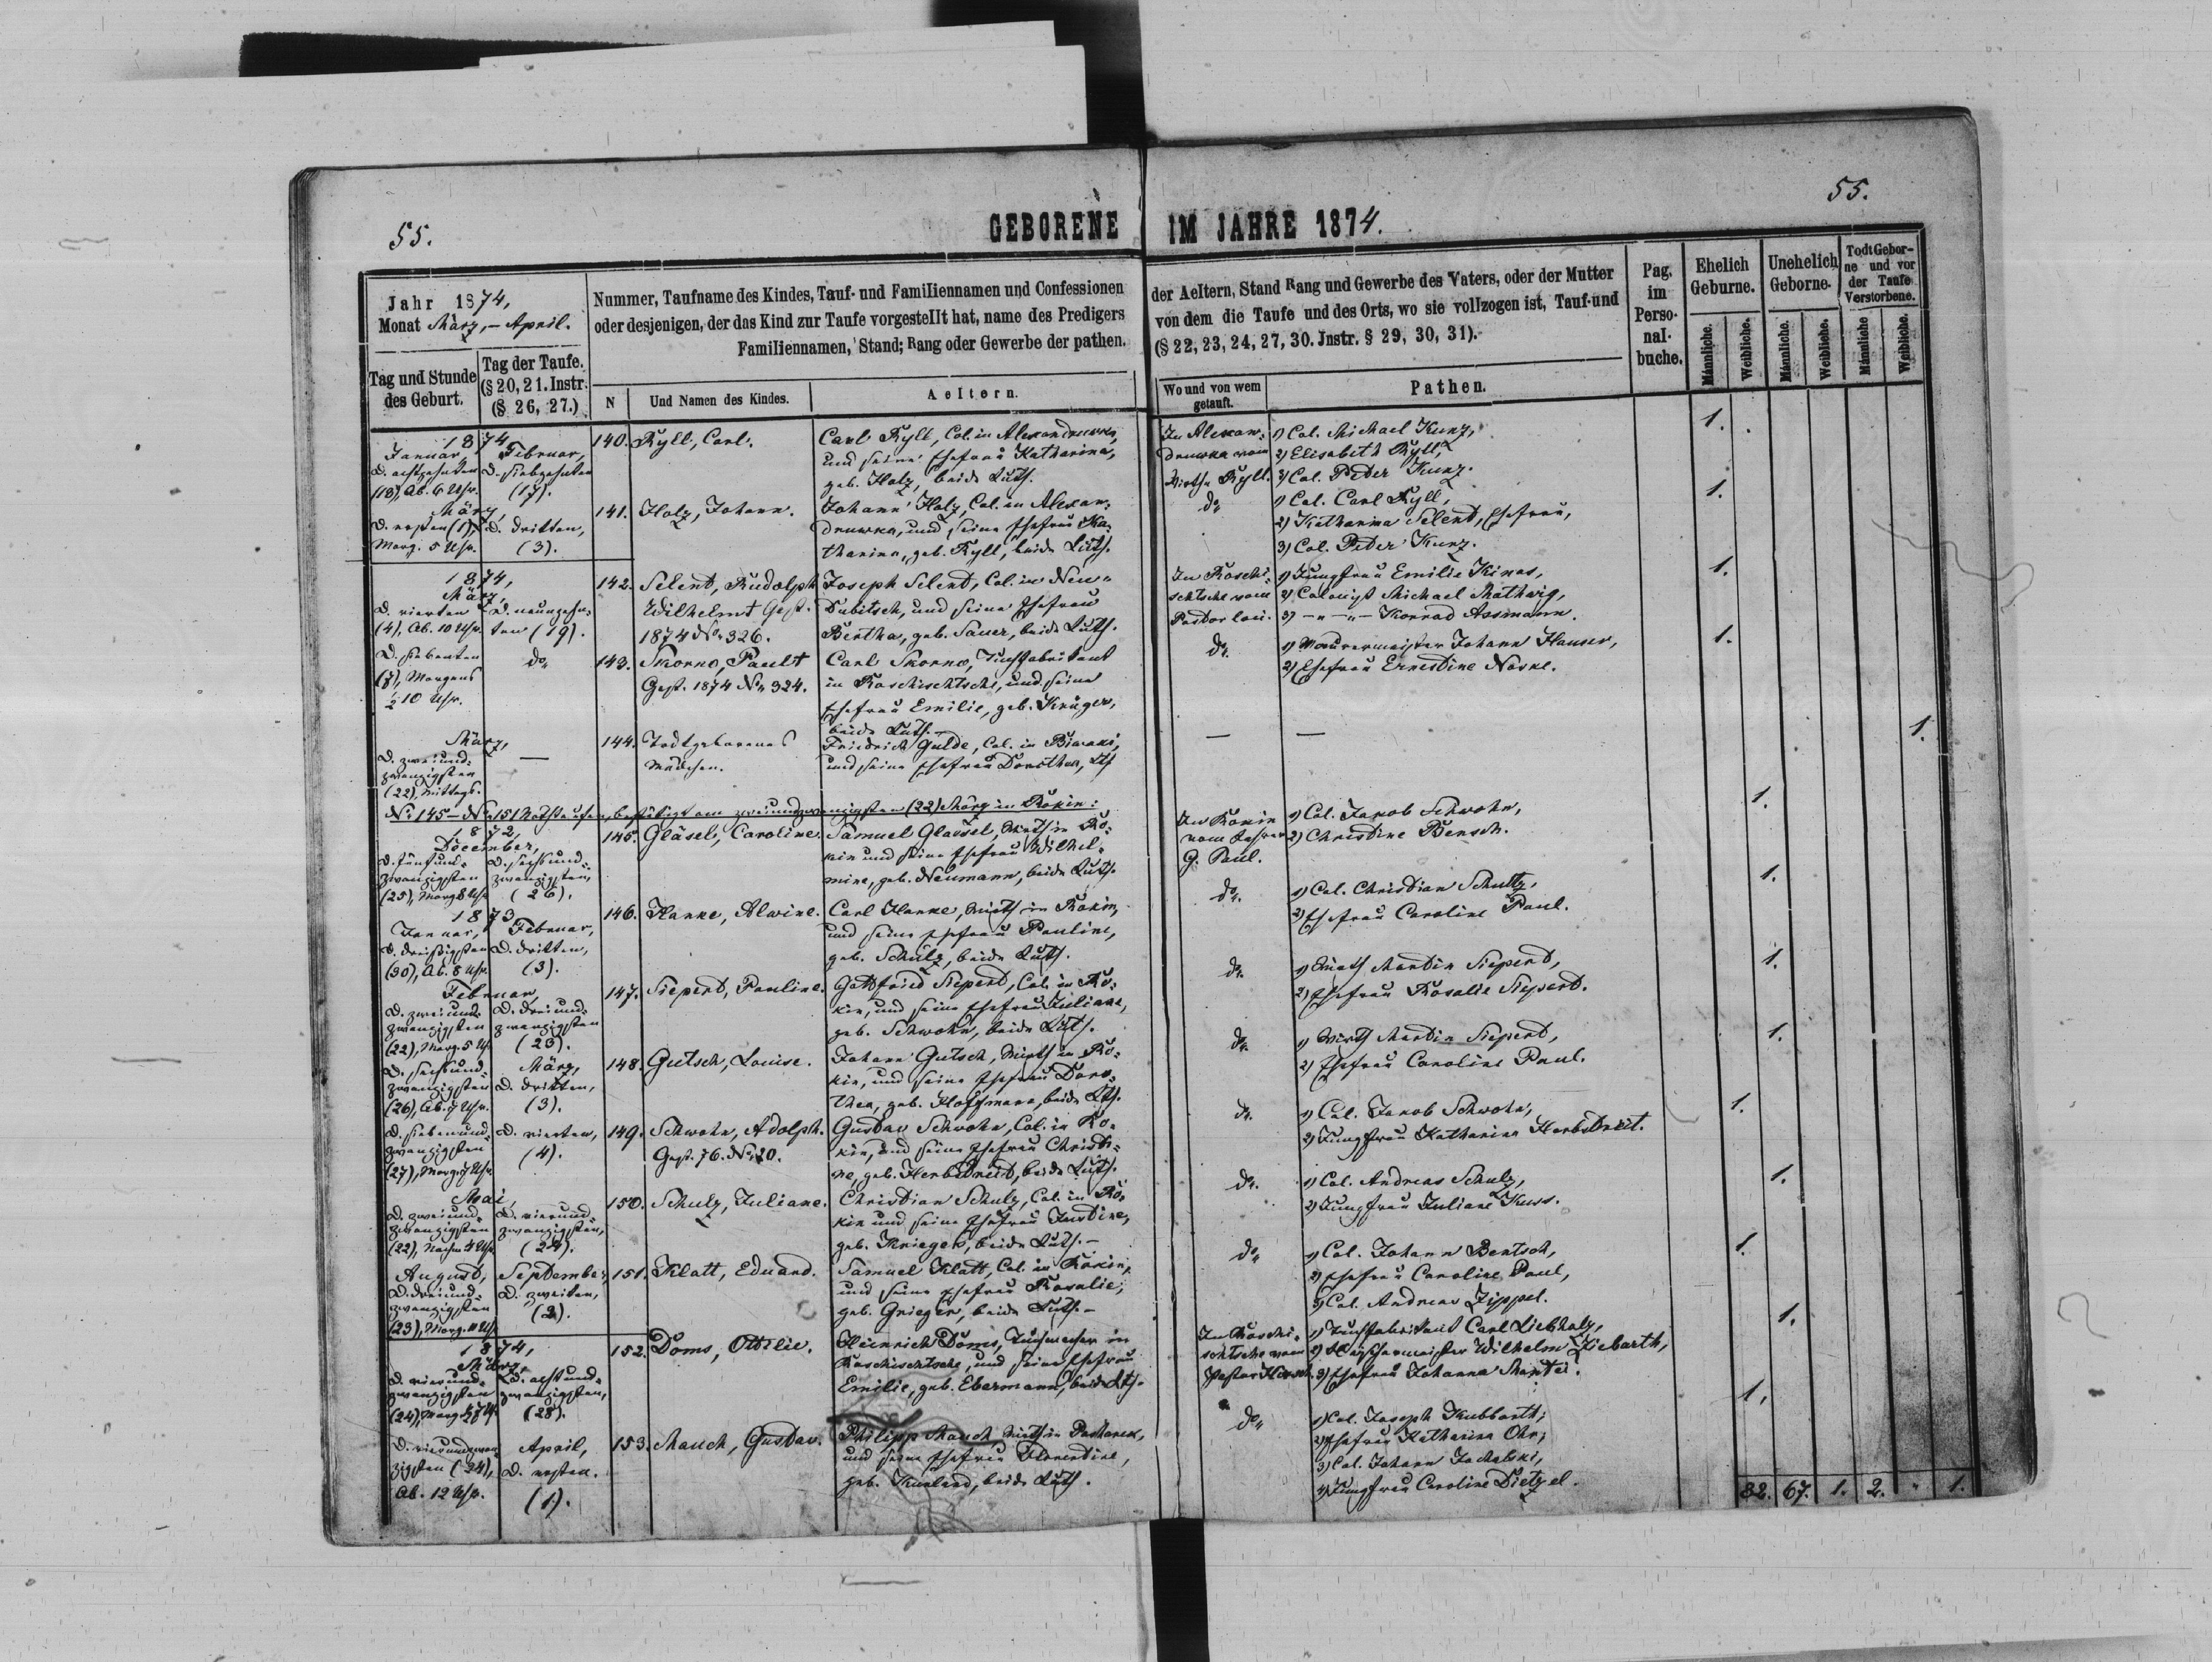 55.
GEBORENE IM JAHRE 1874.
55.
Jahr 1874,
Monat März, - April.
Tag und Stunde
des Geburt.
Tag der Taufe.
(§ 20, 21. Instr.
(§ 26, 27.)
Nummer, Taufname des Kindes, Tauf- und Familiennamen und Confessionen
oder desjenigen, der das Kind zur Taufe vorgestellt hat, name des Predigers
Familiennamen, Stand; Rang oder Gewerbe der pathen.
N
Und Namen des Kindes.
Aeltern.
der Aeltern, Stand Rang und Gewerbe des Vaters, oder der Mutter
von dem die Taufe und des Orts, wo sie vollzogen ist, Tauf-und
(§ 22, 23, 24, 27, 30. Jnstr. § 29, 30, 31).
Wo und von wem
getauft.
Pathen.
Pag.
im
Perso-
nal-
buche.
Ehelich
Geburne.
Unehelich
Geborne.
Todt Gebor-
ne und vor
der Taufe
Verstorbene.
Männliche.
Weibliche.
Männliche.
Weibliche.
Männliche
Weibliche.
1874
Januar
D. achtzehnten
(18), Ab. 6 Uhr.
Februar,
D. siebzehnten
(17).
140. Ryll, Carl.
Carl Ryll, Col. in Alexandruwka,
und seine Ehefrau Katharina,
geb. Holz, beide Luth.
In Alexan-
druwka vom
Wirthe Ryll.
1) Col. Michael Kunz,
2) Elisabeth Ryll,
3) Col. Peter Kunz.
1.
März,
D. ersten (1),
Morg. 5 Uhr.
D. dritten,
(3).
141. Holz, Johann.
Johann Holz, Col. in Alexan-
druwka, und seine Ehefrau Ka-
tharina, geb. Ryll, beide Luth.
do
1) Col. Carl Ryll,
2) Katharina Selent, Ehefrau,
3) Col. Peter Kunz.
1.
1874,
März,
D. vierten
(4), Ab. 10 Uhr.
D. neunzehn-
ten (19).
142. Selent, Rudolph
Wilhelm † Gest.
1874 No 326.
Joseph Selent, Col. in Neu-
Dubitsch, und seine Ehefrau
Bertha, geb. Sauer, beide Luth.
In Roschi-
schtsche vom
Pastor loci.
1) Jungfrau Emilie Kinas,
2) Colonist Michael Mathwig,
3) -"-"- Konrad Assmann.
1.
D. siebenten
(7), Morgens
½ 10 Uhr.
do
143. Skorno, Paul †
Gest. 1874 No 324.
Carl Skorno, Tuchfabrikant
in Roschischtsche, und seine
Ehefrau Emilie, geb. Krüger,
beide Luth.
do.
1) Maurermeister Johann Hauser,
2) Ehefrau Ernestine Noske.
1.
März,
D. zweiund-
zwanzigsten
(22), Mittags.
—
144. Todtgeborenes
Mädchen.
Friedrich Gulde, Col. in
und seine Ehefrau Dorothea,
—
—
1.
No 145 - No 151 Nothtaufen, bestätigt am zweiundzwanzigsten (22) März in Rokin:
1872,
December,
D. fünfund-
zwanzigsten
(25), Morg. 8 Uhr
D. sechsund-
zwanzigsten,
(26).
145. Gläsel, Caroline.
Samuel Gläsel, Wirth in Ro-
kin und seine Ehefrau Wilhel-
mine, geb. Neumann, beide Luth.
In Rokin
vom Lehrer
G. Paul.
1) Col. Jakob Schwohn,
2) Christine Bensch.
1.
1873
Januar,
D. dreißigsten
(30), Ab. 8 Uhr.
Februar,
D. dritten,
(3).
146. Hanke, Alwine.
Carl Hanke, Wirth in Rokin,
und seine Ehefrau Pauline,
geb. Schulz, beide Luth.
do.
1) Col. Christian Schultz,
2) Ehefrau Caroline Paul.
1.
Februar,
D. zweiund-
zwanzigsten
(22), Morg. 5 U.
D. dreiund-
zwanzigsten
(23).
147. Siepert, Pauline.
Gottfried Siepert, Col. in Ro-
kin, und seine Ehefrau Juliane,
geb. Schwohn, beide Luth.
do.
1) Wirth Martin Siepert,
2) Ehefrau Rosalie Siepert.
1.
D. sechsund-
zwanzigsten
(26), Ab. 7 Uhr.
März,
D. dritten,
(3).
148. Gutsch, Louise.
Johann Gutsch, Wirth in Ro-
kin, und seine Ehefrau Doro-
thea, geb. Hoffmann, beide Lth.
do.
1) Wirth Martin Siepert,
2) Ehefrau Caroline Paul.
1.
D. siebenund-
zwanzigsten
(27), Morg. 7 Uhr.
D. vierten,
(4).
149. Schwohn, Adolph.
Gest. 76. No 120.
Gustav Schwohn, Col. in Ro-
kin, und seine Ehefrau Christi-
ne, geb. Herbstreit, beide Luth.
do.
1) Col. Jakob Schwohn,
2) Jungfrau Katharina Herbstreit.
1.
Mai,
D. zweiund-
zwanzigsten
(22), Nachm. 4 Uhr
D. vierund-
zwanzigsten,
(24).
150. Schulz, Juliane.
Christian Schulz, Col. in Ro-
kin und seine Ehefrau Justine,
geb. Krieger, beide Luth. -
do.
1) Col. Andreas Schulz,
2) Jungfrau Juliane Kuss.
1.
August,
D. dreiund-
zwanzigsten
(23), Morg. 11 Uhr
September,
D. zweiten,
(2).
151. Klatt, Eduard.
Samuel Klatt, Col. in Rokin,
und seine Ehefrau Rosalie,
geb. Grieger, beide Luth. -
do
1) Col. Johann Bentsch,
2) Ehefrau Caroline Paul,
3) Col. Andreas Zippel.
1.
1874,
März,
D. vierund-
zwanzigsten
(24), Morg. ½ 7 Uhr.
D. achtund-
zwanzigsten,
(28).
152. Doms, Ottilie.
Heinrich Doms, Tuchmacher in
Roschischtsche, und seine Ehefrau
Emilie, geb. Ebermann, beide Lth.
In Roschi-
schtsche vom
Pastor
1) Tuchfabrikant Carl Liebholz,
2) Wilhelm Ziebarth,
3) Ehefrau Johanna Mantei.
1.
D. vierundzwan-
zigsten (24),
Ab. 12 Uhr.
April,
D. ersten.
(1).
153. Mauch, Gustav.
Philipp Mauch Wirth in
und seine Ehefrau Florentine,
geb. Kurland, beide Luth.
do
1) Col. Joseph Kubbarth,
2) Ehefrau Katharina Ohr,
3) Col. Johann Jachalski,
4) Jungfrau Caroline Dietzel.
1.
82. 67. 1. 2. " 1.